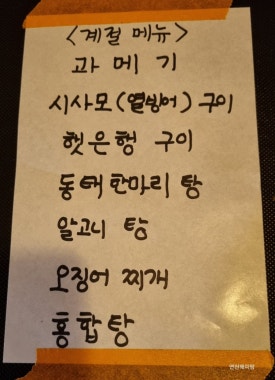 <계절 메뉴>
과 메 기
시사모(열빙어) 구이
햇은행 구이
동태한마리 탕
알고니 탕
오징어 찌개
홍합탕